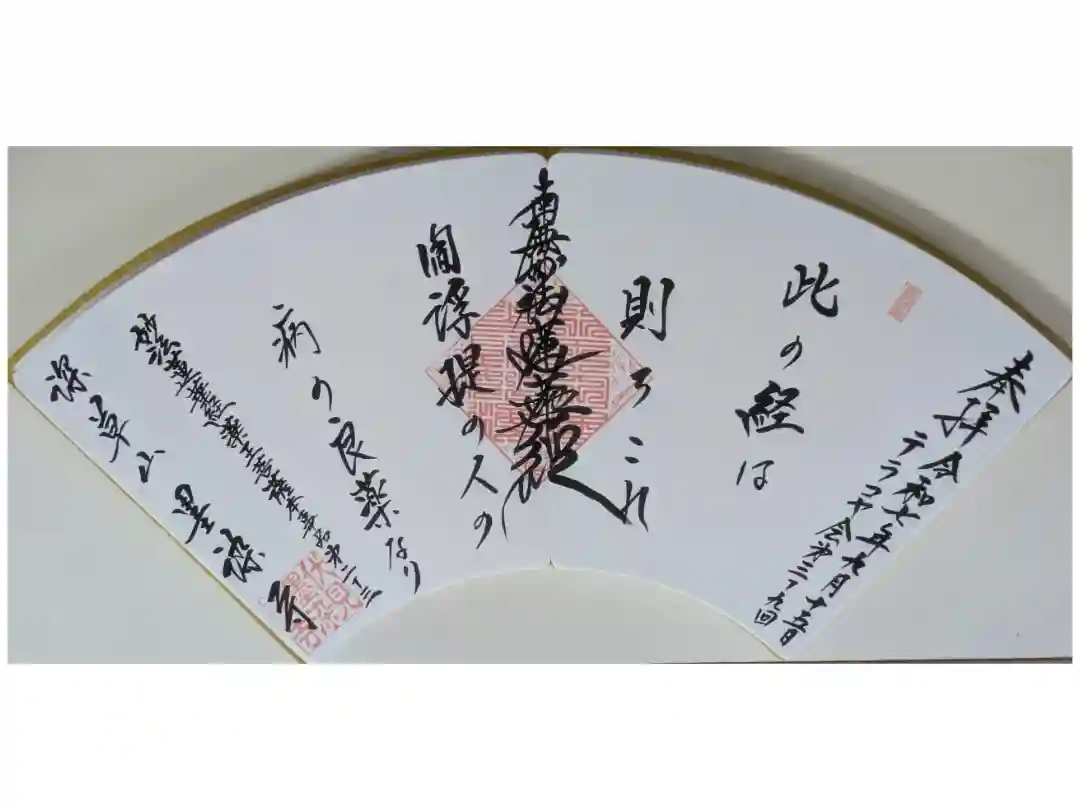 奉拝 令和七年九月十五日
テラコヤ会第三十九回
此の経は
則ちこれ
南無妙法蓮華経
閻浮提の人の
病の良薬なり
妙法蓮華経薬王菩薩本事品第二十三
深草山 墨染寺
伏見
墨染寺